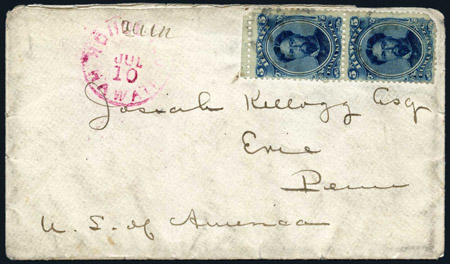 JUL
10
HAWAII
5 5 5
Josiah Kellogg Esq
Erie
Penn
U. S. of America